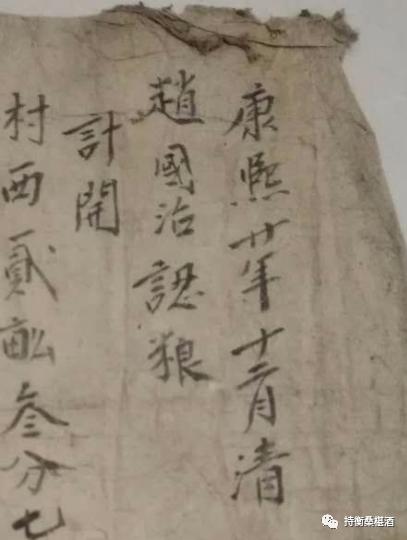 康熙廿年十二月清
趙國治認粮
計開
村西貳畝叁分七
持衡桑椹酒